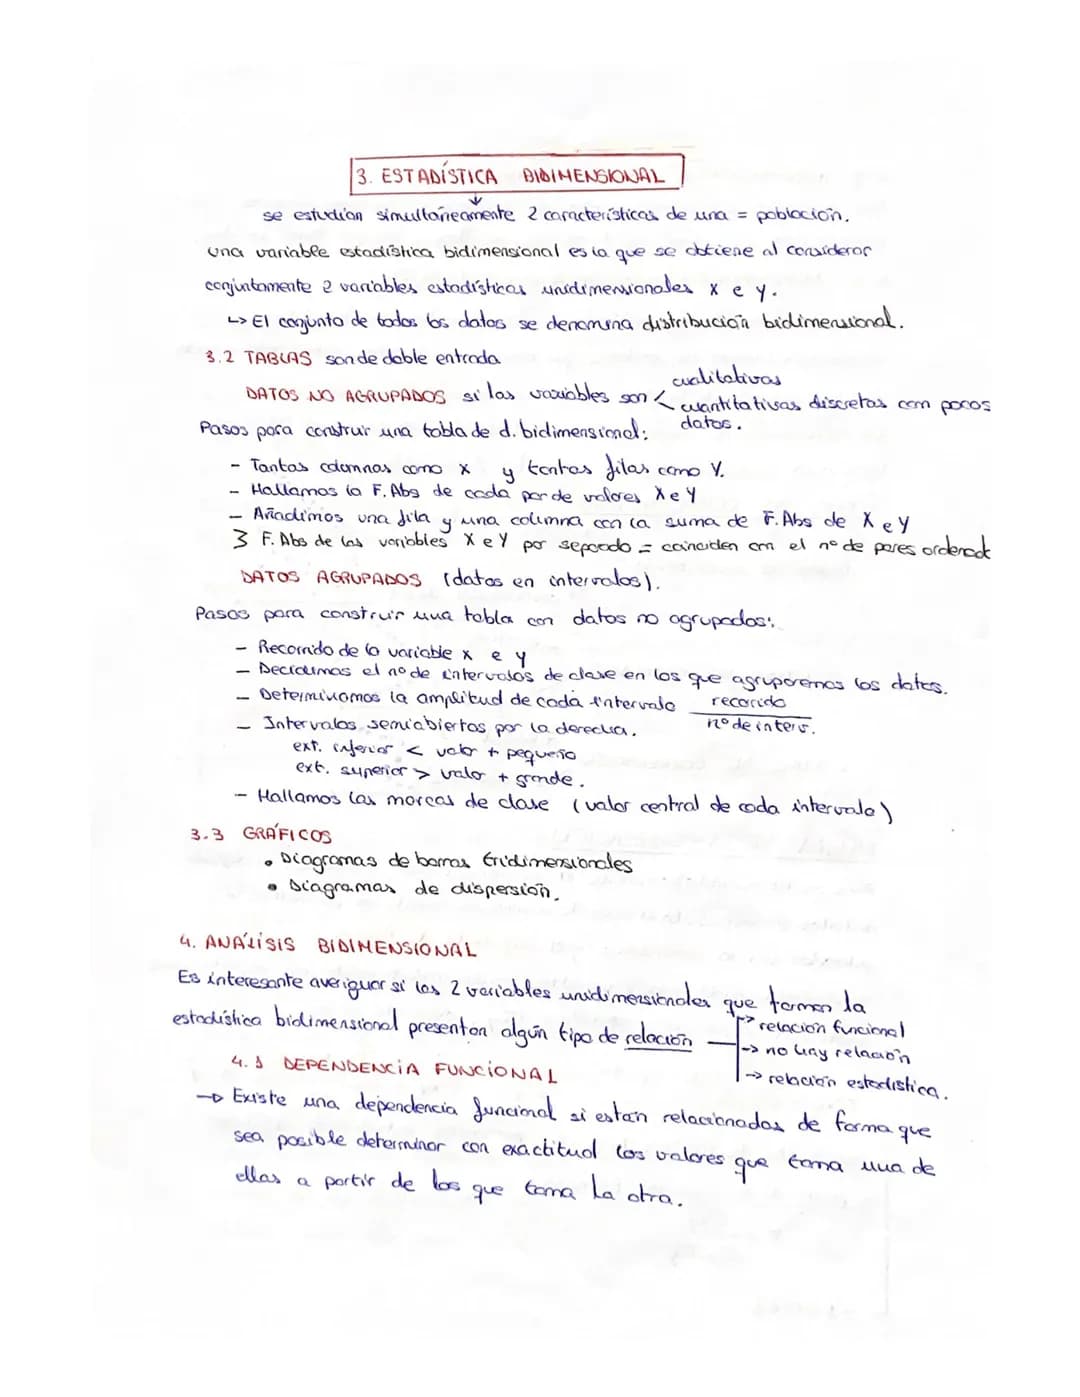 3. ESTADÍSTICA BIDIMENSIONAL
se estudian simultáneamente 2 características de una = población.
una variable estadística bidimensional es la que se obtiene al considerar
conjuntamente 2 variables estadísticas unidimensionales x e y.
↳ El conjunto de todos los datos se denomina distribución bidimensional.
3.2 TABLAS son de doble entrada
DATOS NO AGRUPADOS si las variables son < cualitativas
cuantitativas discretas con pocos
datos.
Pasos para construir una tabla de d. bidimensional:
- Tantas columnas como x y tantas filas como Y.
- Hallamos la F. Abs de cada par de valores X e Y
- Añadimos una fila y una columna con la suma de F. Abs de X e Y
3 F. Abs de las variables X e Y por separado = coinciden con el nº de pares ordenad
DATOS AGRUPADOS (datos en intervalos).
Pasos para construir una tabla con datos no agrupados:
- Recorrido de la variable x e y
- Decidimos el nº de intervalos de clase en los que agruparemos los datos.
- Determinamos la amplitud de cada intervalo recorrido
nº de interv.
- Intervalos semiabiertos por la derecha.
ext. inferior < valor + pequeño
ext. superior > valor + grande.
- Hallamos las marcas de clase (valor central de cada intervalo)
3.3 GRÁFICOS
• Diagramas de barras tridimensionales
• Diagramas de dispersión.
4. ANÁLISIS BIDIMENSIONAL
Es interesante averiguar si las 2 variables unidimensionales que forman la
estadística bidimensional presentan algún tipo de relación
→ relación funcional
→ no hay relación
→ relación estadística.
4.1 DEPENDENCIA FUNCIONAL
→ Existe una dependencia funcional si están relacionadas de forma que
sea posible determinar con exactitud los valores que toma una de
ellas a partir de los que toma la otra.